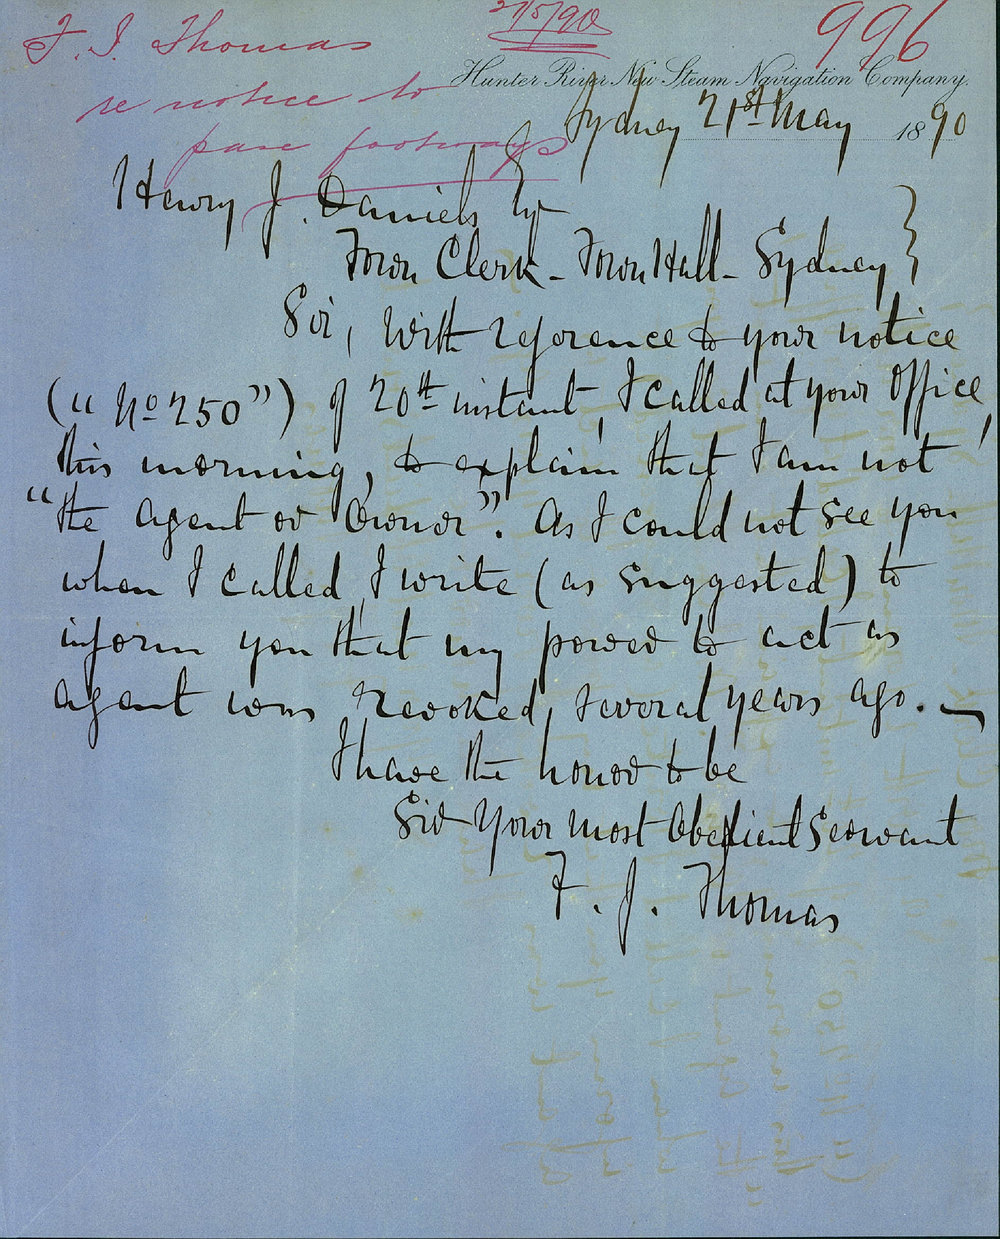 27/5/90
996
F. J. Thomas
re notice to
pave footways
Hunter River New Steam Navigation Company.
Sydney 21st May 1890
Henry J. Daniels Esqr
Town Clerk - Town Hall - Sydney
Sir, With reference to your notice
("No 250") of 20th instant, I called at your Office,
this morning, to explain that I am not
"the Agent or Owner". As I could not see you
when I called, I write (as suggested) to
inform you that my power to act as
agent was revoked, several years ago. -
I have the honor to be
Sir Your most Obedient Servant
F. J. Thomas